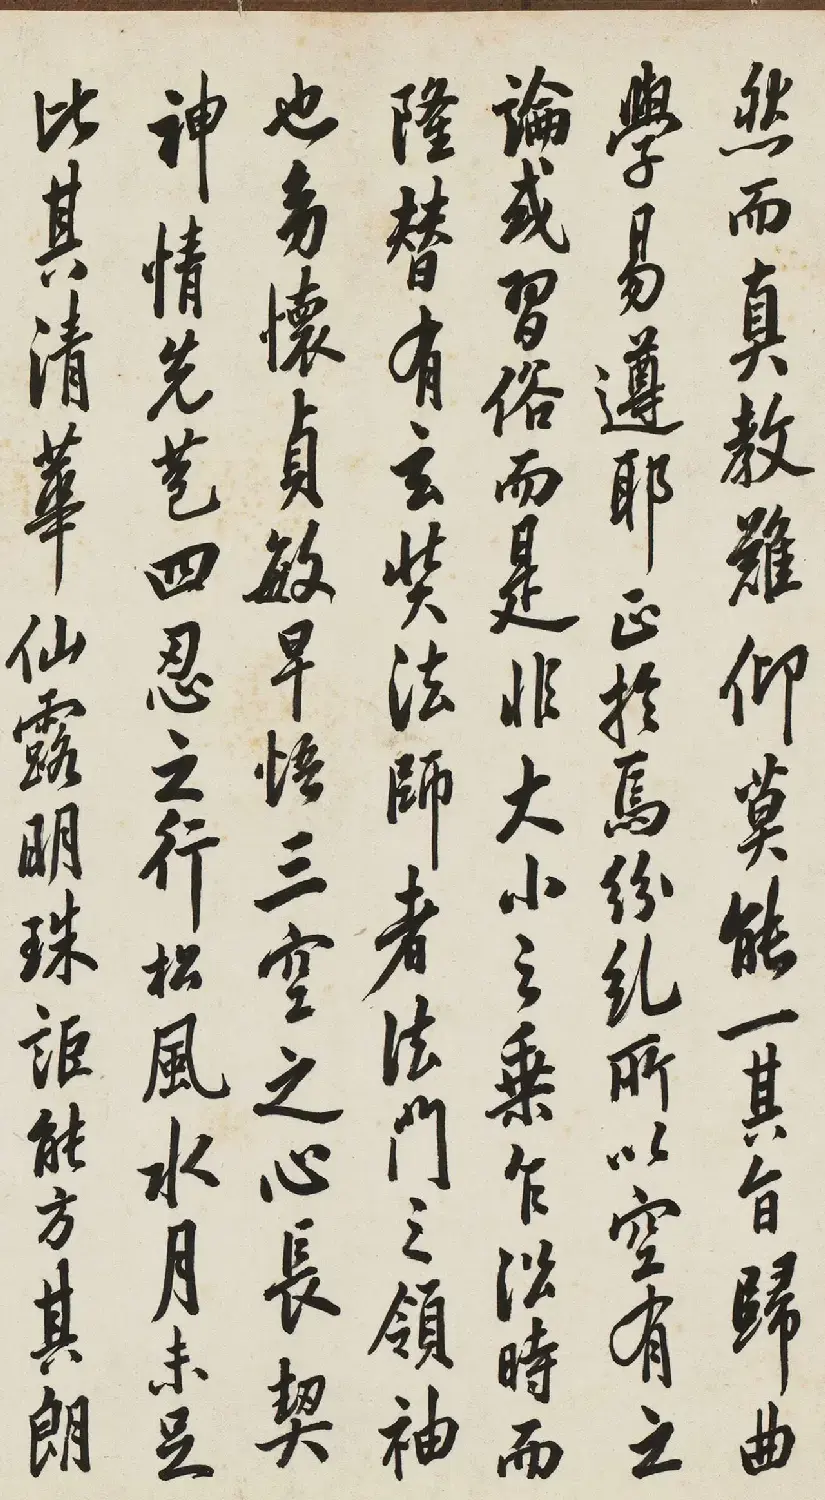 然而真教難仰莫能一其旨歸曲
學易遵耶正於焉紛糺所以空有之
論或習俗而是非大小之乘乍沿時而
隆替有玄奘法師者法門之領袖
也幼懷貞敏早悟三空之心長契
神情先苞四忍之行松風水月未足
比其清華仙露明珠詎能方其朗